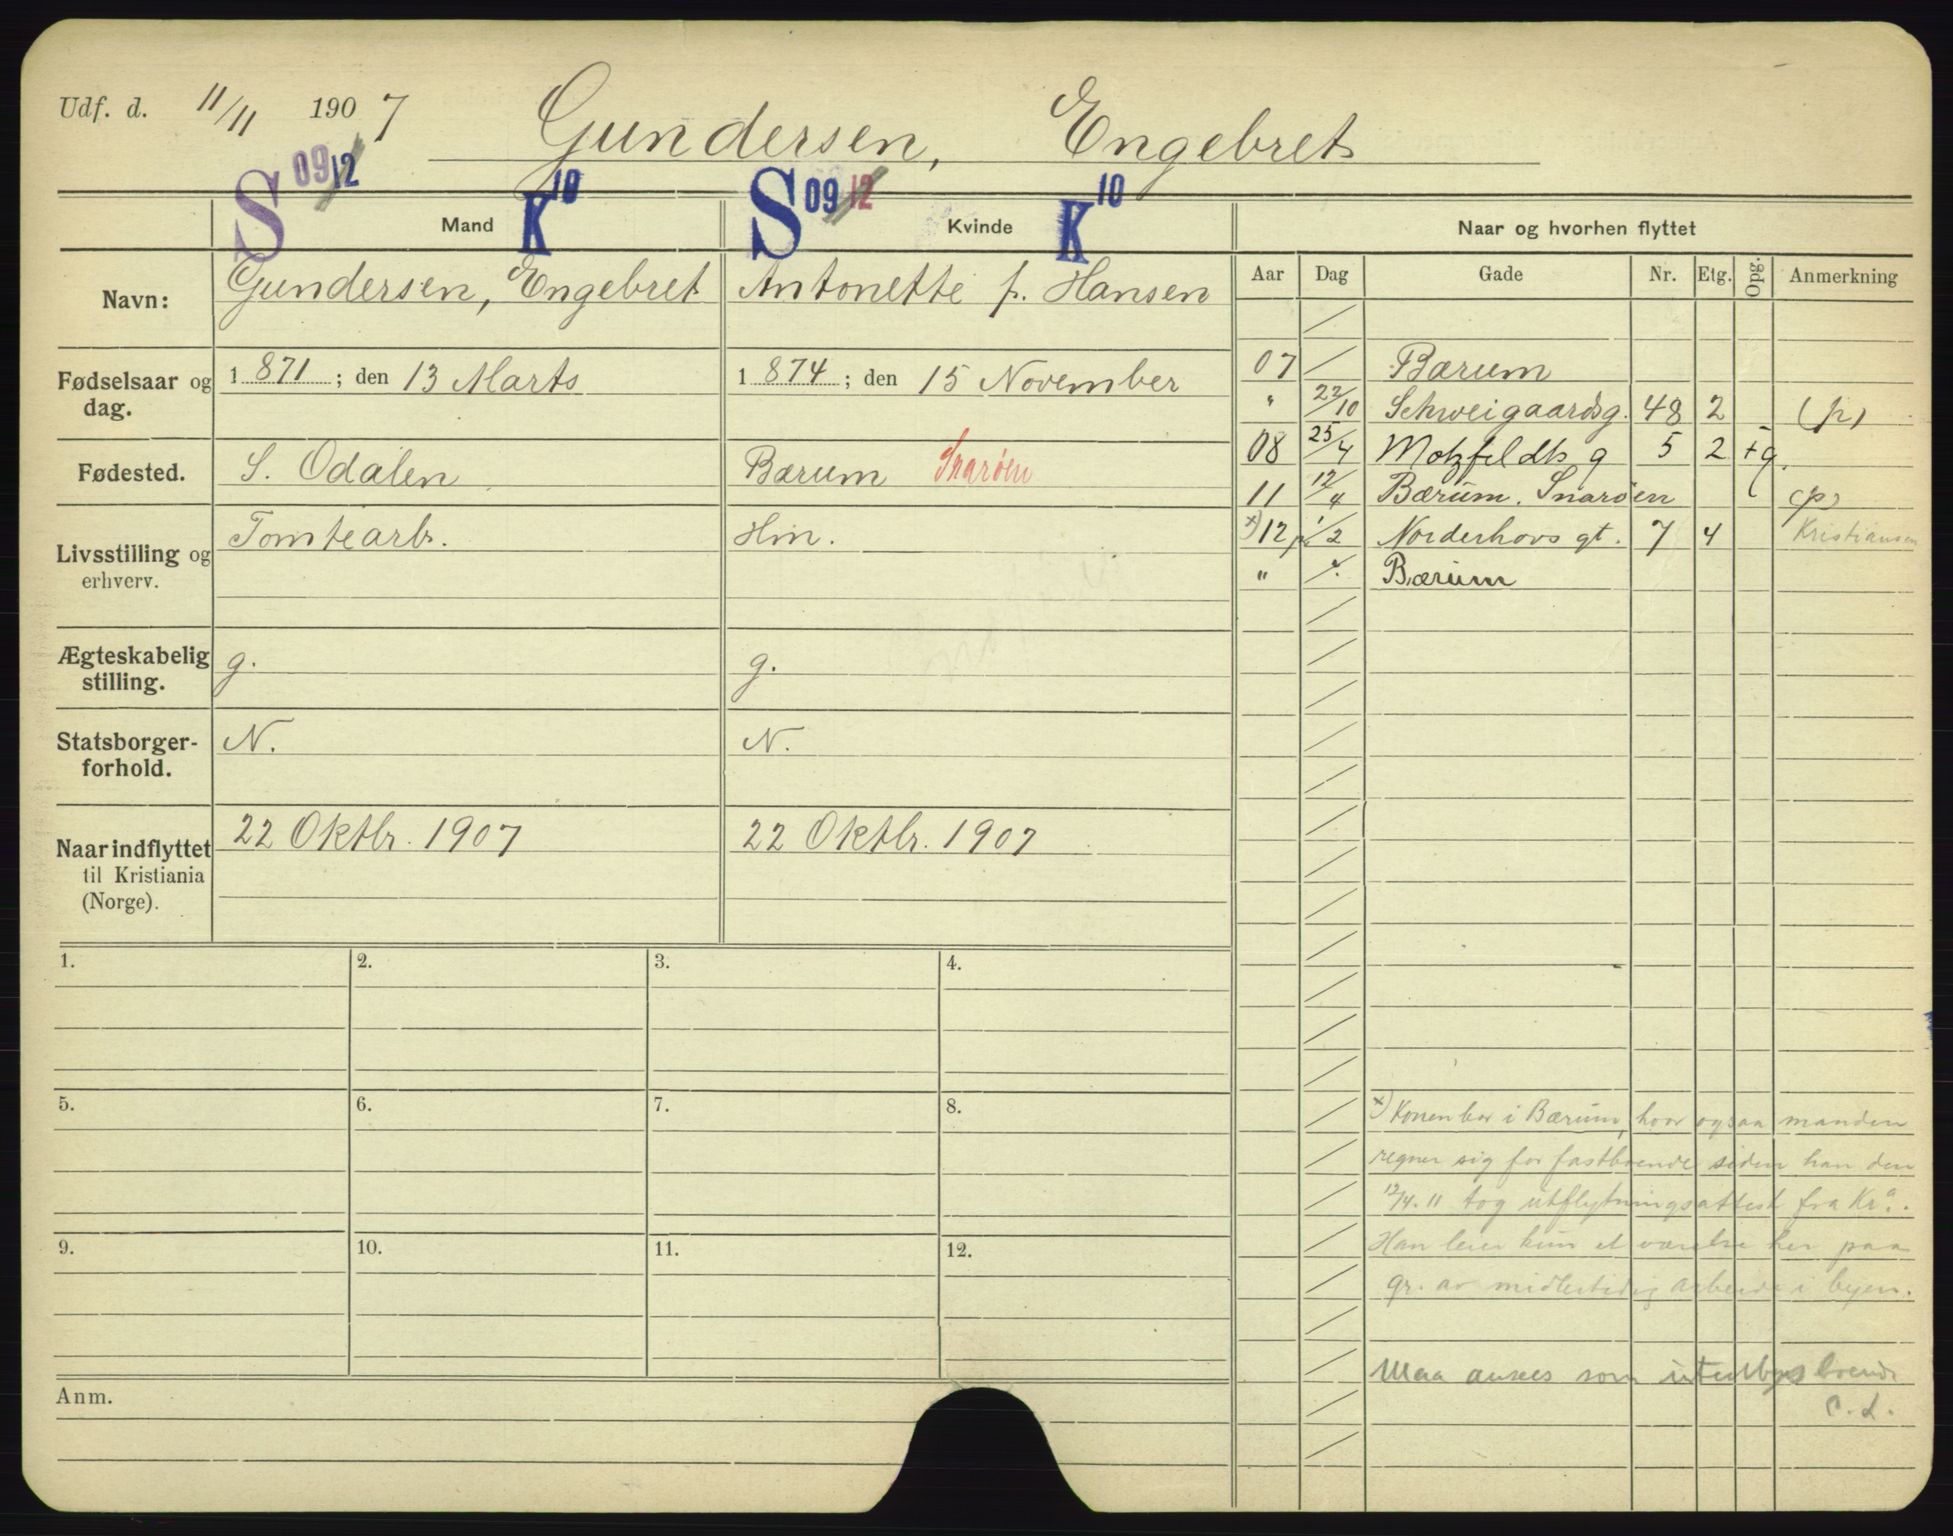 Udf. d. 11/11 1907 Gundersen, Engebret
S 09/12 K 10 S 09/12 K 10
Mand Kvinde Naar og hvorhen flyttet
Aar Dag Gade Nr. Etg. Opg. Anmerkning
Navn: Gundersen, Engebret Antonette f. Hansen
Fødselsaar og dag. 1871; den 13 Marts 1874; den 15 November
Fødested. S. Odalen Bærum Snarøen
Livsstilling og erhverv. Tomtearb. Hm.
Ægteskabelig stilling. g. g.
Statsborgerforhold. N. N.
Naar indflyttet til Kristiania (Norge). 22 Oktbr. 1907 22 Oktbr. 1907
07 Bærum
" 22/10 Schweigaardsg. 48 2 (p)
08 25/4 Motzfeldts g 5 2 +g.
11 12/4 Bærum. Snarøen (p)
x) 12 1/2 Norderhovs gt. 7 4 Kristiansen
" " Bærum
1. 2. 3. 4.
5. 6. 7. 8.
9. 10. 11. 12.
Anm.
x) Konen bor i Bærum, hvor ogsaa manden
regner sig for fastboende siden han den
12/4.11 tog utflytningsattest fra Kr.a.
Han leier kun et værelse her paa
gr. av midlertidig arbeide i byen.
Maa ansees som utenbys boende